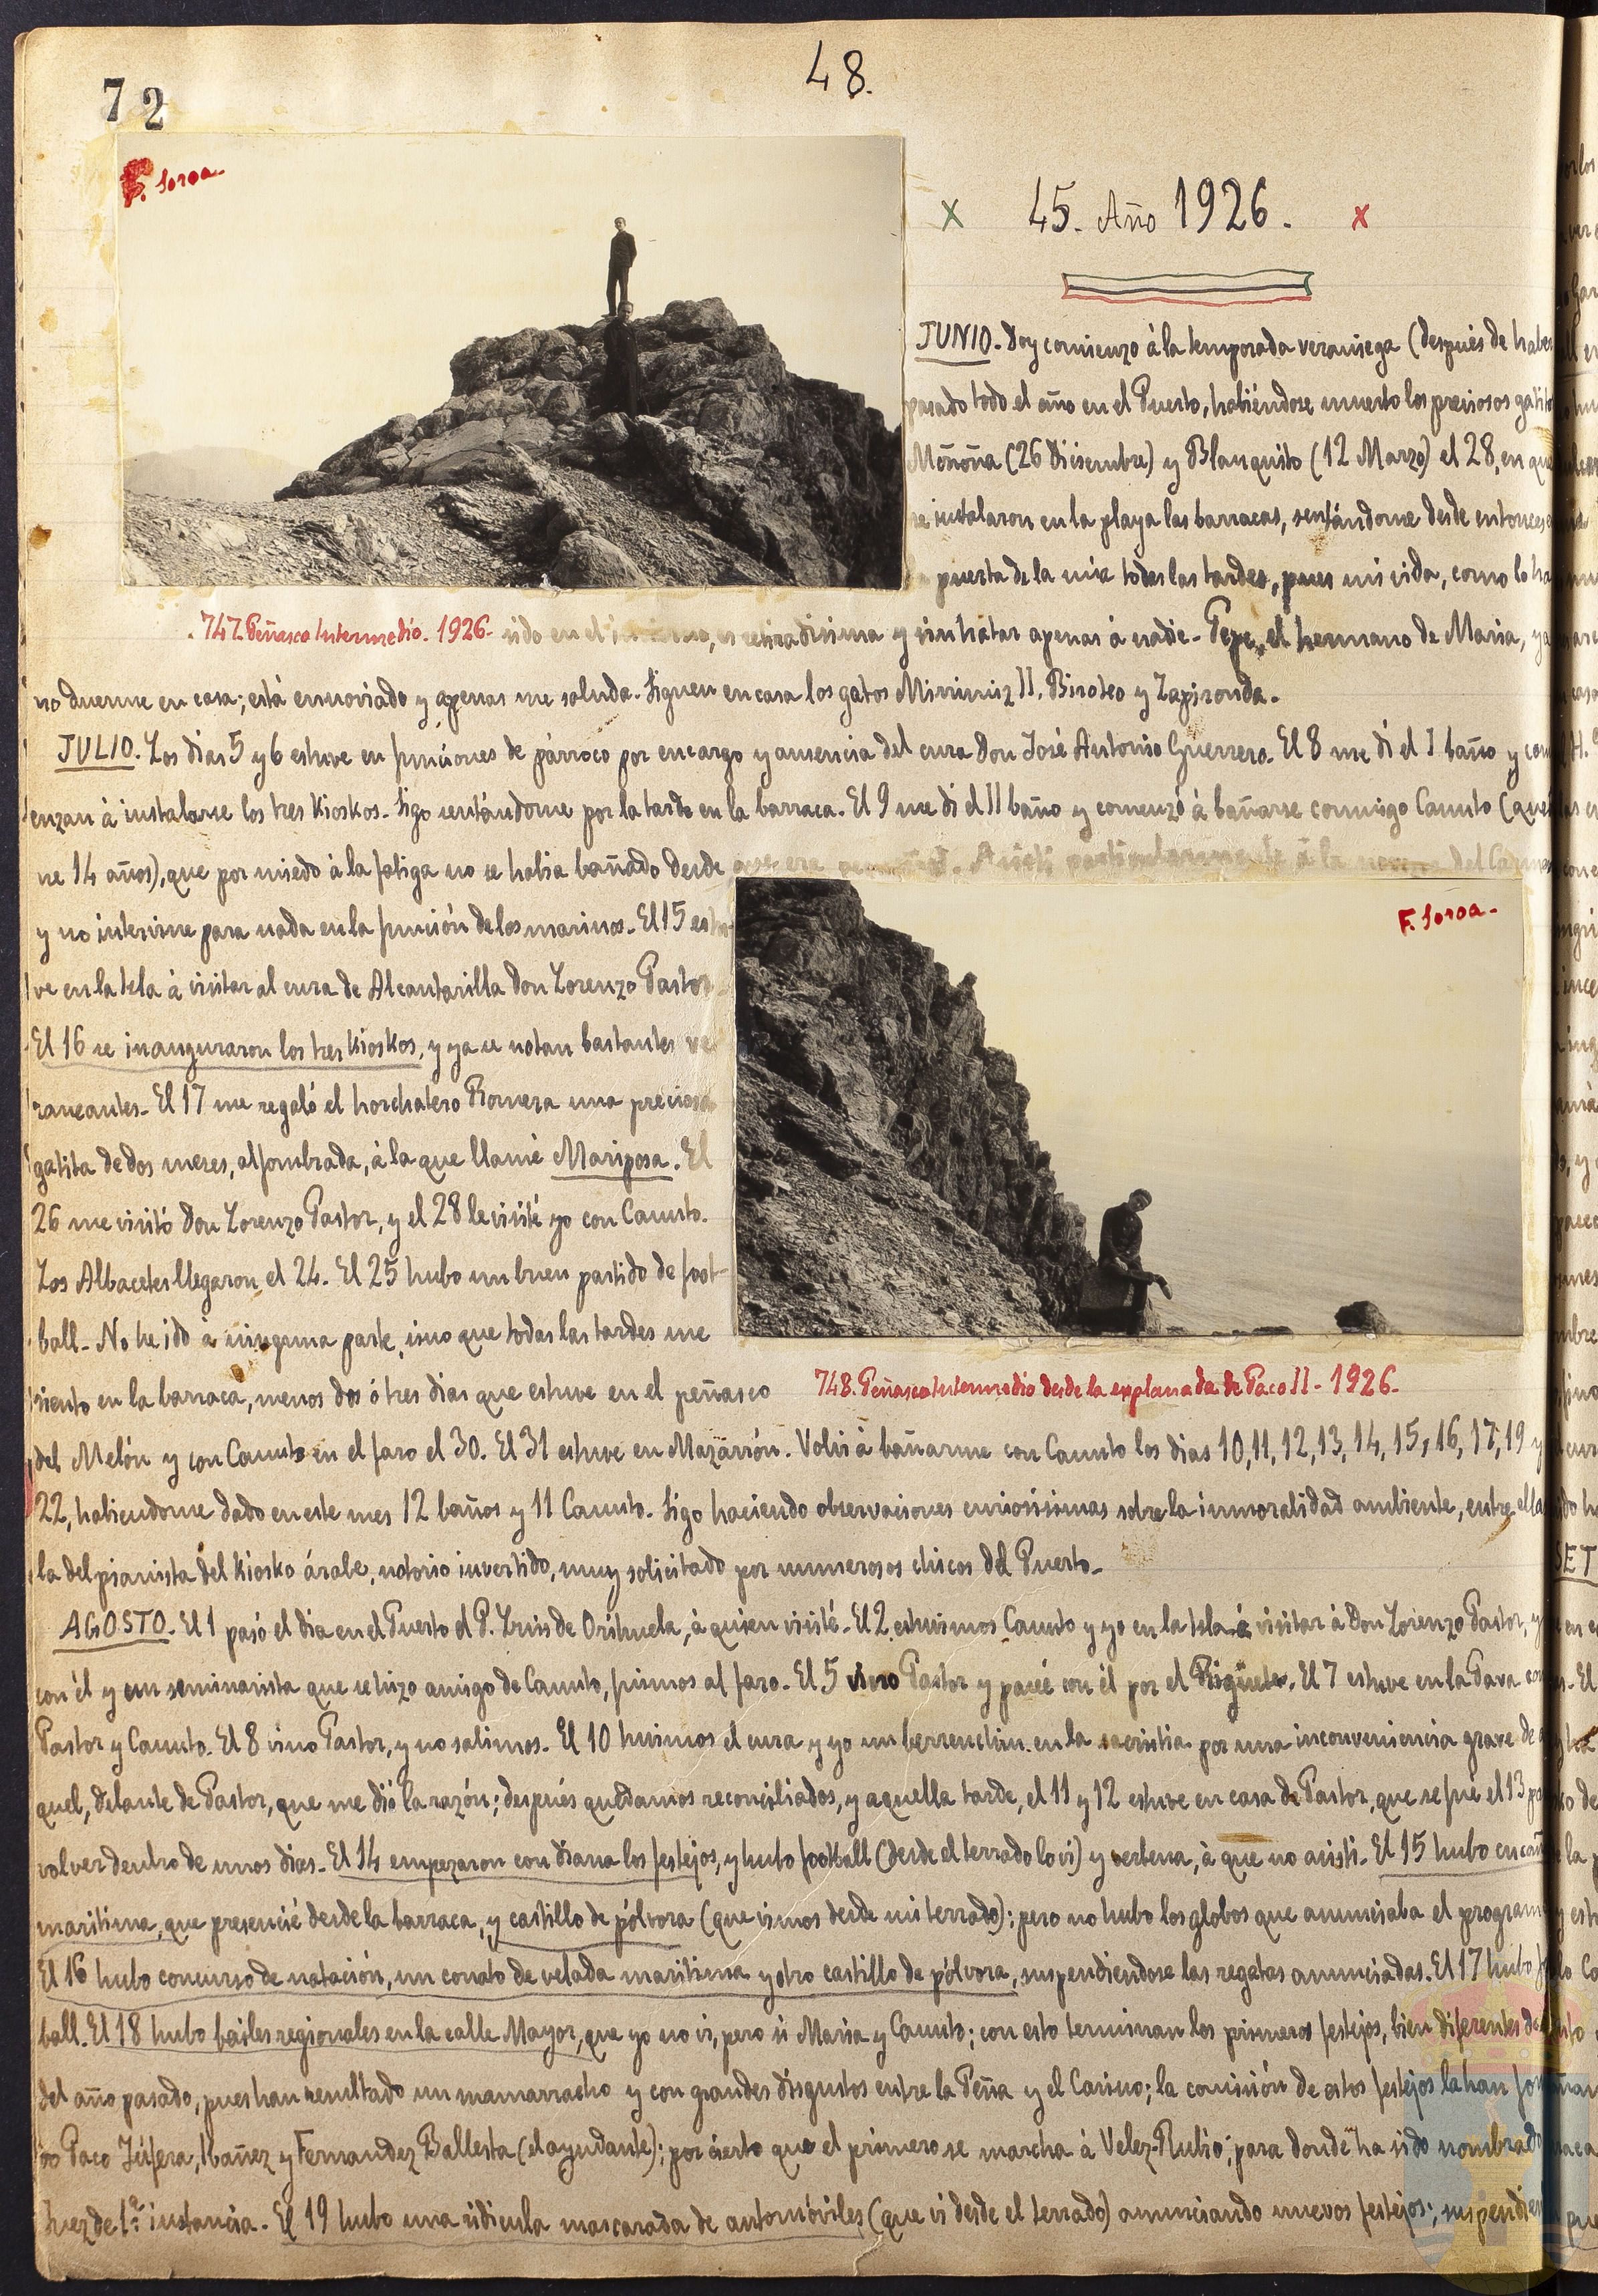 48.
72
F. Soroa.
x 45. Año 1926. x
JUNIO. Doy comienzo á la temporada veraniega (después de haber
pasado todo el año en el Puerto, habiéndose muerto los preciosos gatitos
Moñoña (26 diciembre) y Blanquito (12 Marzo) el 28, en que
se instalaron en la playa las barracas, sentándome desde entonces
puerta de la mía todas las tardes, pues mi vida, como lo ha
747. Peñasco Intermedio. 1926.
sido en el invierno, es retiradísima y sin tratar apenas á nadie. Pepe, el hermano de María, ya
no duerme en casa; está ennoviado y apenas me saluda. Siguen en casa los gatos Minimiz II, Biroteo y Zapironda.
JULIO. Los días 5 y 6 estuve en funciones de párroco por encargo y ausencia del cura Don José Antonio Guerrero. El 8 me di el I baño y com
enzan á instalarse los tres Kioskos. Sigo sentándome por la tarde en la barraca. El 9 me di el II baño y comenzó á bañarse conmigo Canuto (que
ne 14 años), que por miedo á la fatiga no se había bañado desde que era pequeño. Asistí particularmente á la novena del Carmen
y no intervine para nada en la función de los marinos. El 15 estu-
ve en la Isla á visitar al cura de Alcantarilla Don Lorenzo Pastor
El 16 se inauguraron los tres kioskos, y ya se notan bastantes ve
raneantes. El 17 me regaló el horchatero Romera una preciosa
gatita de dos meses, alfombrada, á la que llamé Mariposa. El
26 me visitó Don Lorenzo Pastor, y el 28 le visité yo con Canuto.
Los Albacetes llegaron el 24. El 25 hubo un buen partido de foot-
ball. No he ido á ninguna parte, sino que todas las tardes me
F. Soroa.
748. Peñasco Intermedio desde la explanada de Paco II. 1926.
siento en la barraca, menos dos ó tres días que estuve en el peñasco
del Melón y con Canuto en el faro el 30. El 31 estuve en Mazarrón. Volví á bañarme con Canuto los días 10, 11, 12, 13, 14, 15, 16, 17, 19 y
22, habiéndome dado en este mes 12 baños y 11 Canuto. Sigo haciendo observaciones curiosísimas sobre la inmoralidad ambiente, entre ellas
la del pianista del Kiosko árabe, notorio invertido, muy solicitado por numerosos chicos del Puerto.
AGOSTO. El 1 pasó el día en el Puerto el P. Luis de Orihuela, á quien visité. El 2 estuvimos Canuto y yo en la Isla á visitar á Don Lorenzo Pastor, y
con él y un seminarista que se hizo amigo de Canuto, fuimos al faro. El 5 vino Pastor y paseé con él por el Rigüete. El 7 estuve en la Pava con
Pastor y Canuto. El 8 vino Pastor, y no salimos. El 10 tuvimos el cura y yo un berrenchín en la sacristía por una inconveniencia grave de a
quel, delante de Pastor, que me dió la razón; después quedamos reconciliados, y aquella tarde, el 11 y 12 estuve en casa de Pastor, que se fué el 13 pa
volver dentro de unos días. El 14 empezaron con diana los festejos, y hubo football (desde el terrado lo vi) y verbena, á que no asistí. El 15 hubo cucaña
marítima, que presencié desde la barraca, y castillo de pólvora (que vimos desde mi terrado); pero no hubo los globos que anunciaba el programa
El 16 hubo concurso de natación, un conato de velada marítima y otro castillo de pólvora, suspendiéndose las regatas anunciadas. El 17 hubo foot
ball. El 18 hubo bailes regionales en la calle Mayor, que yo no vi, pero sí María y Canuto; con esto terminan los primeros festejos, bien diferentes de
del año pasado, pues han resultado un mamarracho y con grandes disgustos entre la Peña y el Casino; la comisión de estos festejos la han for
Paco Júfera, Ibañez y Fernandez Ballesta (el ayudante); por cierto que el primero se marcha á Velez-Rubio, para donde ha sido nombrado
Juez de 1ª instancia. El 19 hubo una ridícula mascarada de automóviles (que vi desde el terrado) anunciando nuevos festejos; suspendien